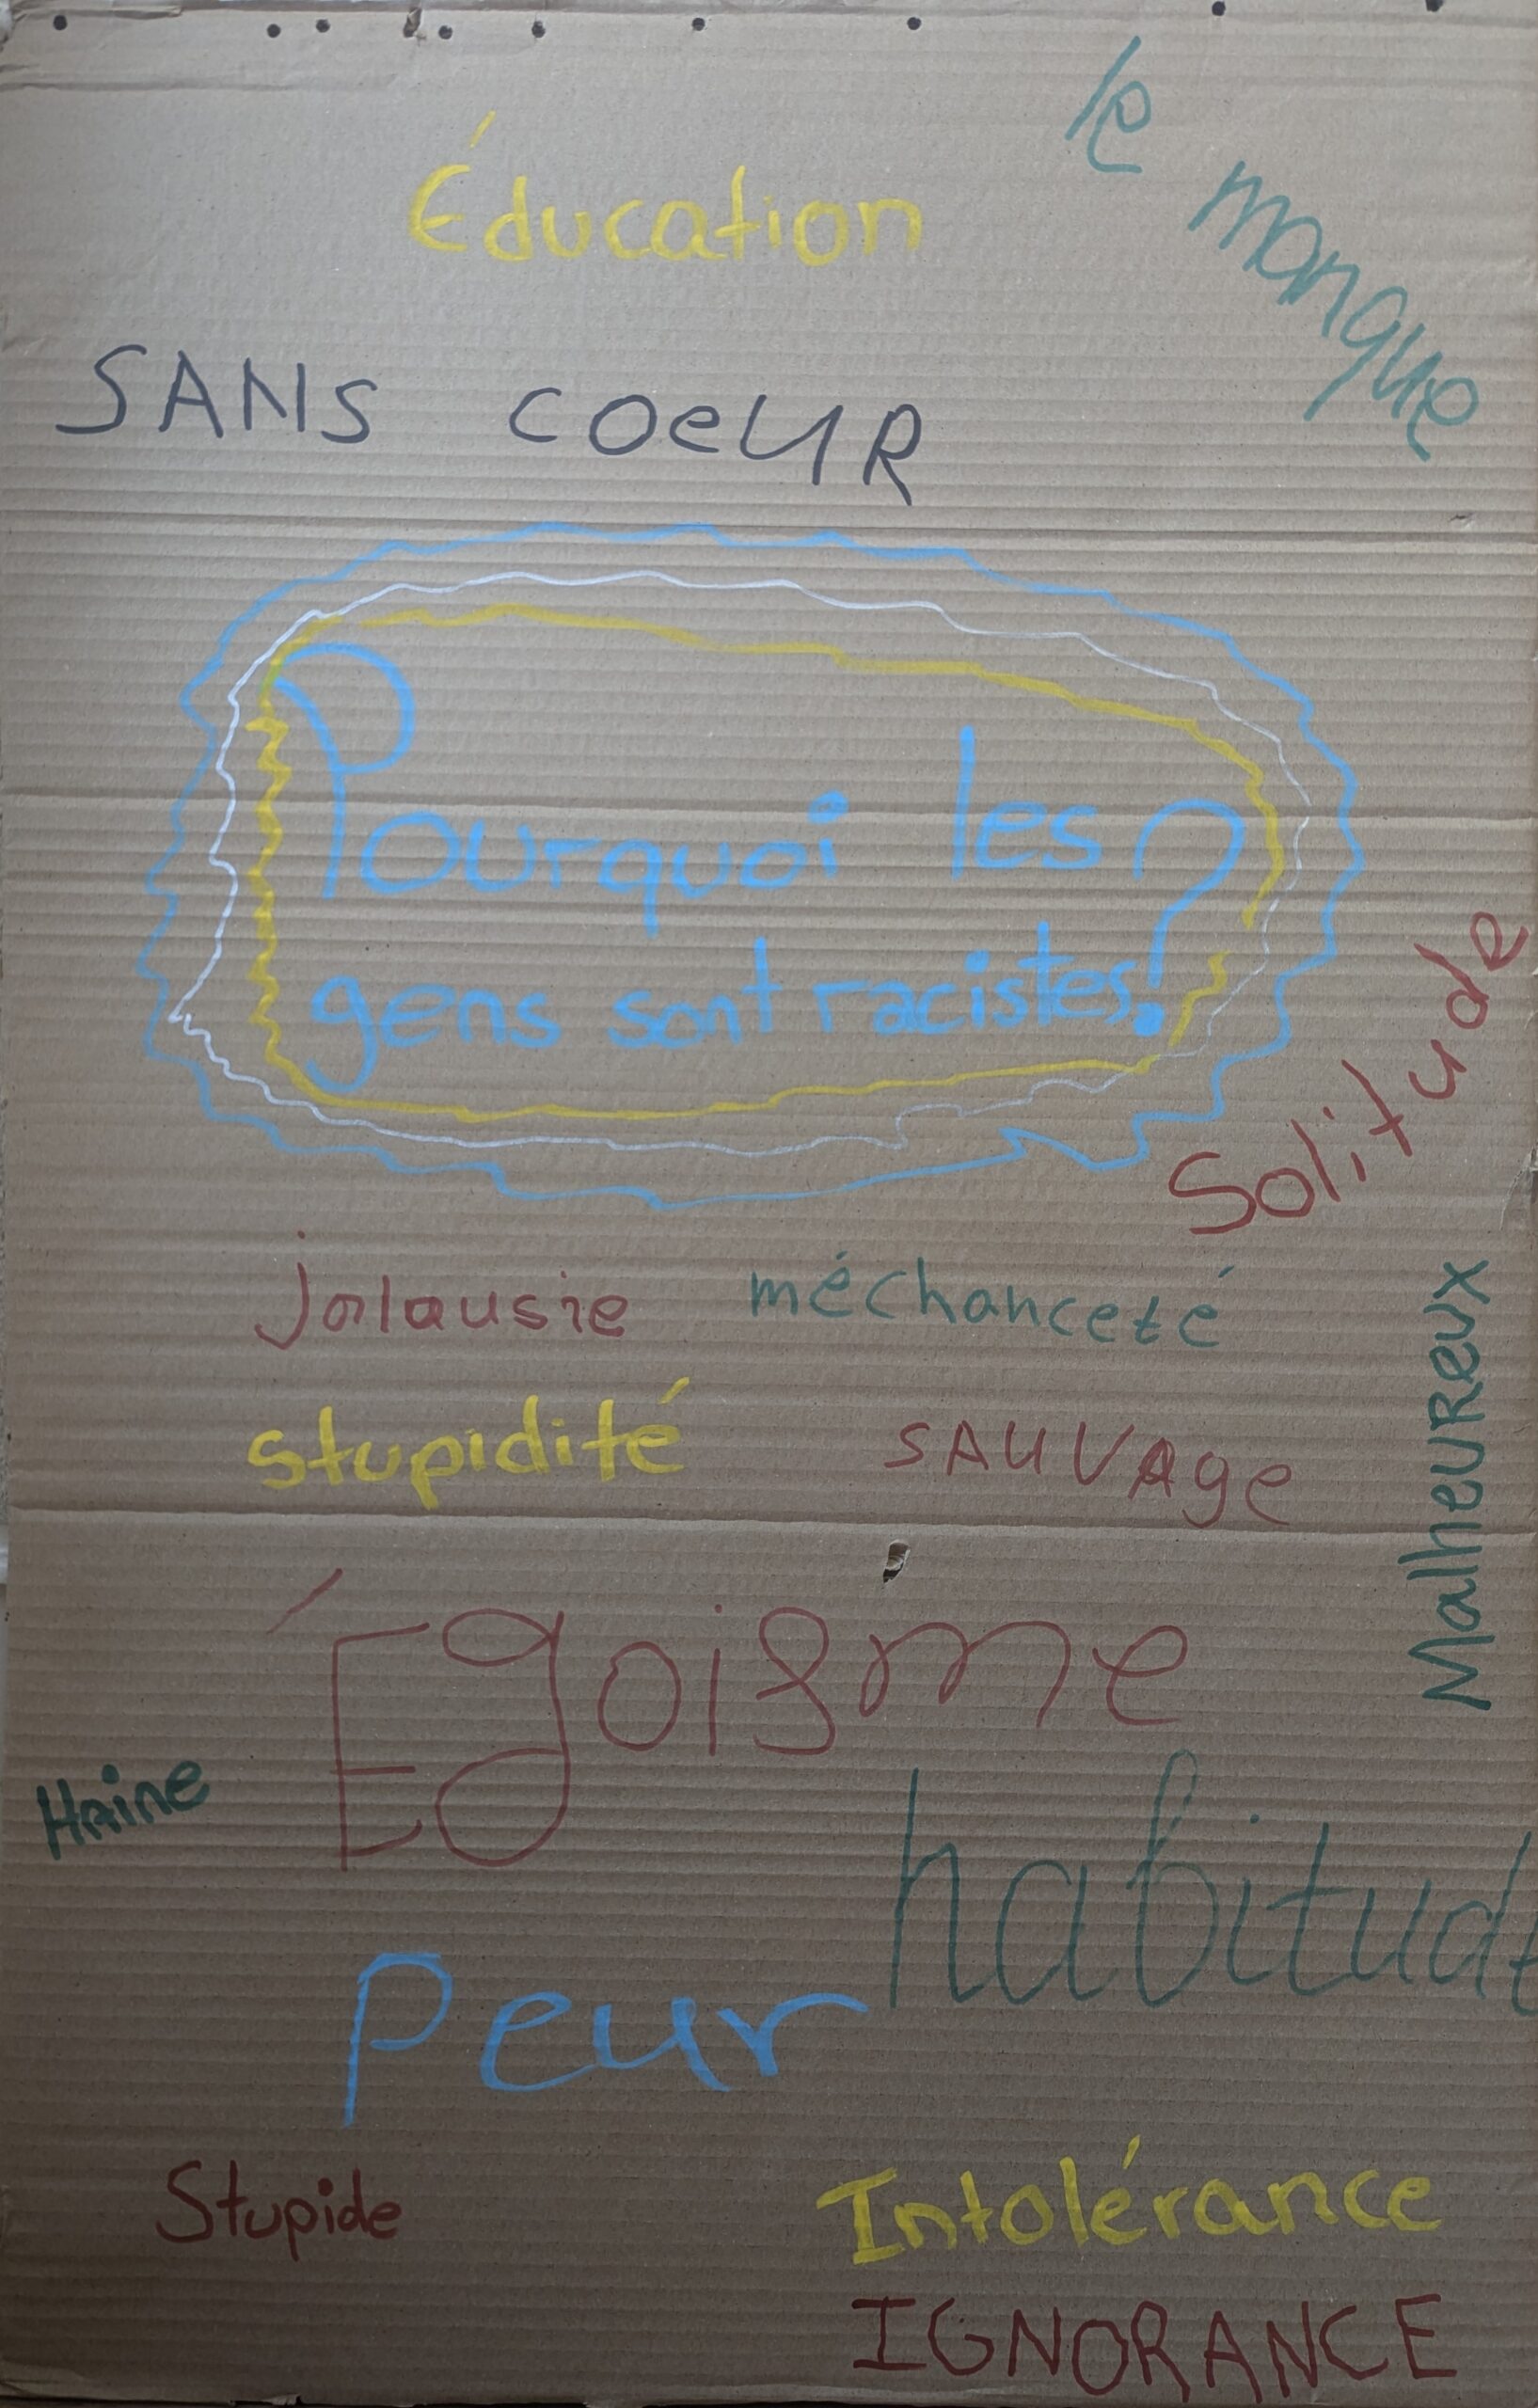 le manque
Éducation
SANS COEUR
Pourquoi les
gens sont racistes?
Solitude
jalausie
méchanceté
stupidité
SAUVAge
MalheuReux
Égoisme
Haine
habitude
Peur
Stupide
Intolérance
IGNORANCE